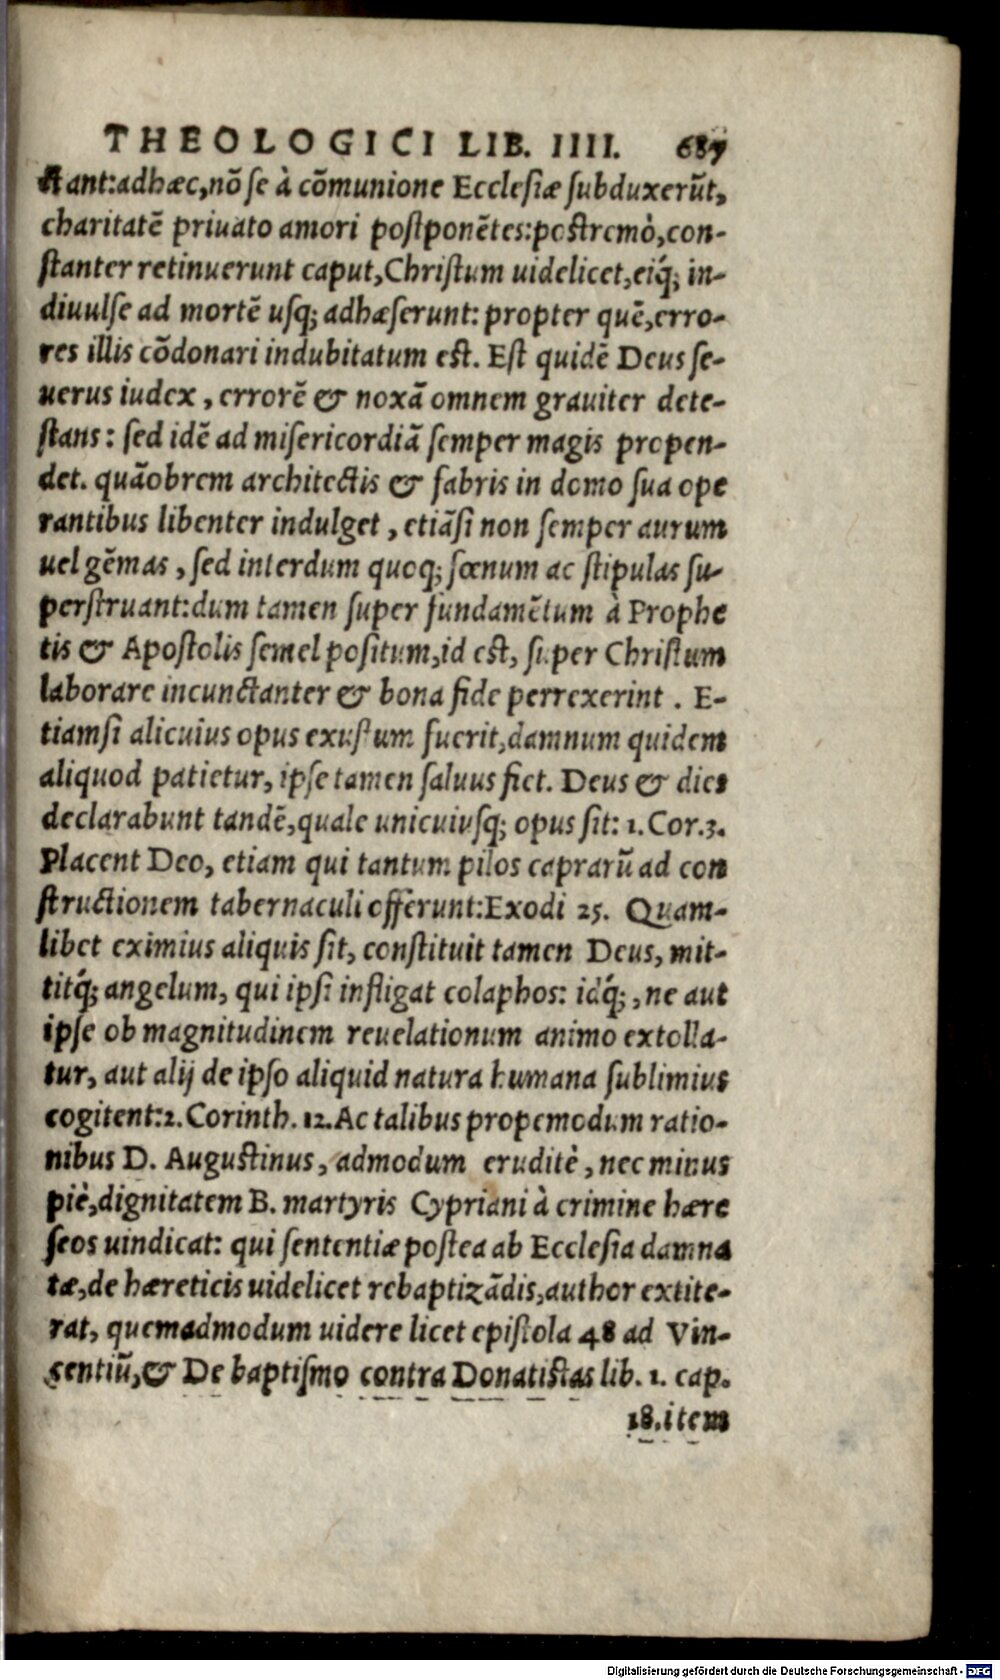 THEOLOGICI LIB. IIII. 687
stant: adhæc, nō se à cōmunione Ecclesiæ subduxerūt,
charitatē priuato amori postponētes: postremò, con-
stanter retinuerunt caput, Christum uidelicet, eiq́; in-
diuulse ad mortē usq; adhæserunt: propter quē, erro-
res illis cōdonari indubitatum est. Est quidē Deus se-
uerus iudex, errorē & noxā omnem grauiter dete-
stans: sed idē ad misericordiā semper magis propen-
det. quāobrem architectis & fabris in domo sua ope
rantibus libenter indulget, etiāsi non semper aurum
uel gēmas, sed interdum quoq; fœnum ac stipulas su-
perstruant: dum tamen super fundamētum à Prophe
tis & Apostolis semel positum, id est, super Christum
laborare incunctanter & bona fide perrexerint. E-
tiamsi alicuius opus exustum fuerit, damnum quidem
aliquod patietur, ipse tamen saluus fiet. Deus & dies
declarabunt tandē, quale unicuiusq; opus sit: 1. Cor. 3.
Placent Deo, etiam qui tantum pilos caprarū ad con
structionem tabernaculi offerunt: Exodi 25. Quam-
libet eximius aliquis sit, constituit tamen Deus, mit-
titq́; angelum, qui ipsi infligat colaphos: idq́;, ne aut
ipse ob magnitudinem reuelationum animo extolla-
tur, aut alij de ipso aliquid natura humana sublimius
cogitent: 2. Corinth. 12. Ac talibus propemodum ratio-
nibus D. Augustinus, admodum eruditè, nec minus
piè, dignitatem B. martyris Cypriani à crimine hære
seos uindicat: qui sententiæ postea ab Ecclesia damna
tæ, de hæreticis uidelicet rebaptizādis, author extite-
rat, quemadmodum uidere licet epistola 48 ad Vin-
centiū, & De baptismo contra Donatistas lib. 1. cap.
18. item
Digitalisierung gefördert durch die Deutsche Forschungsgemeinschaft - DFG